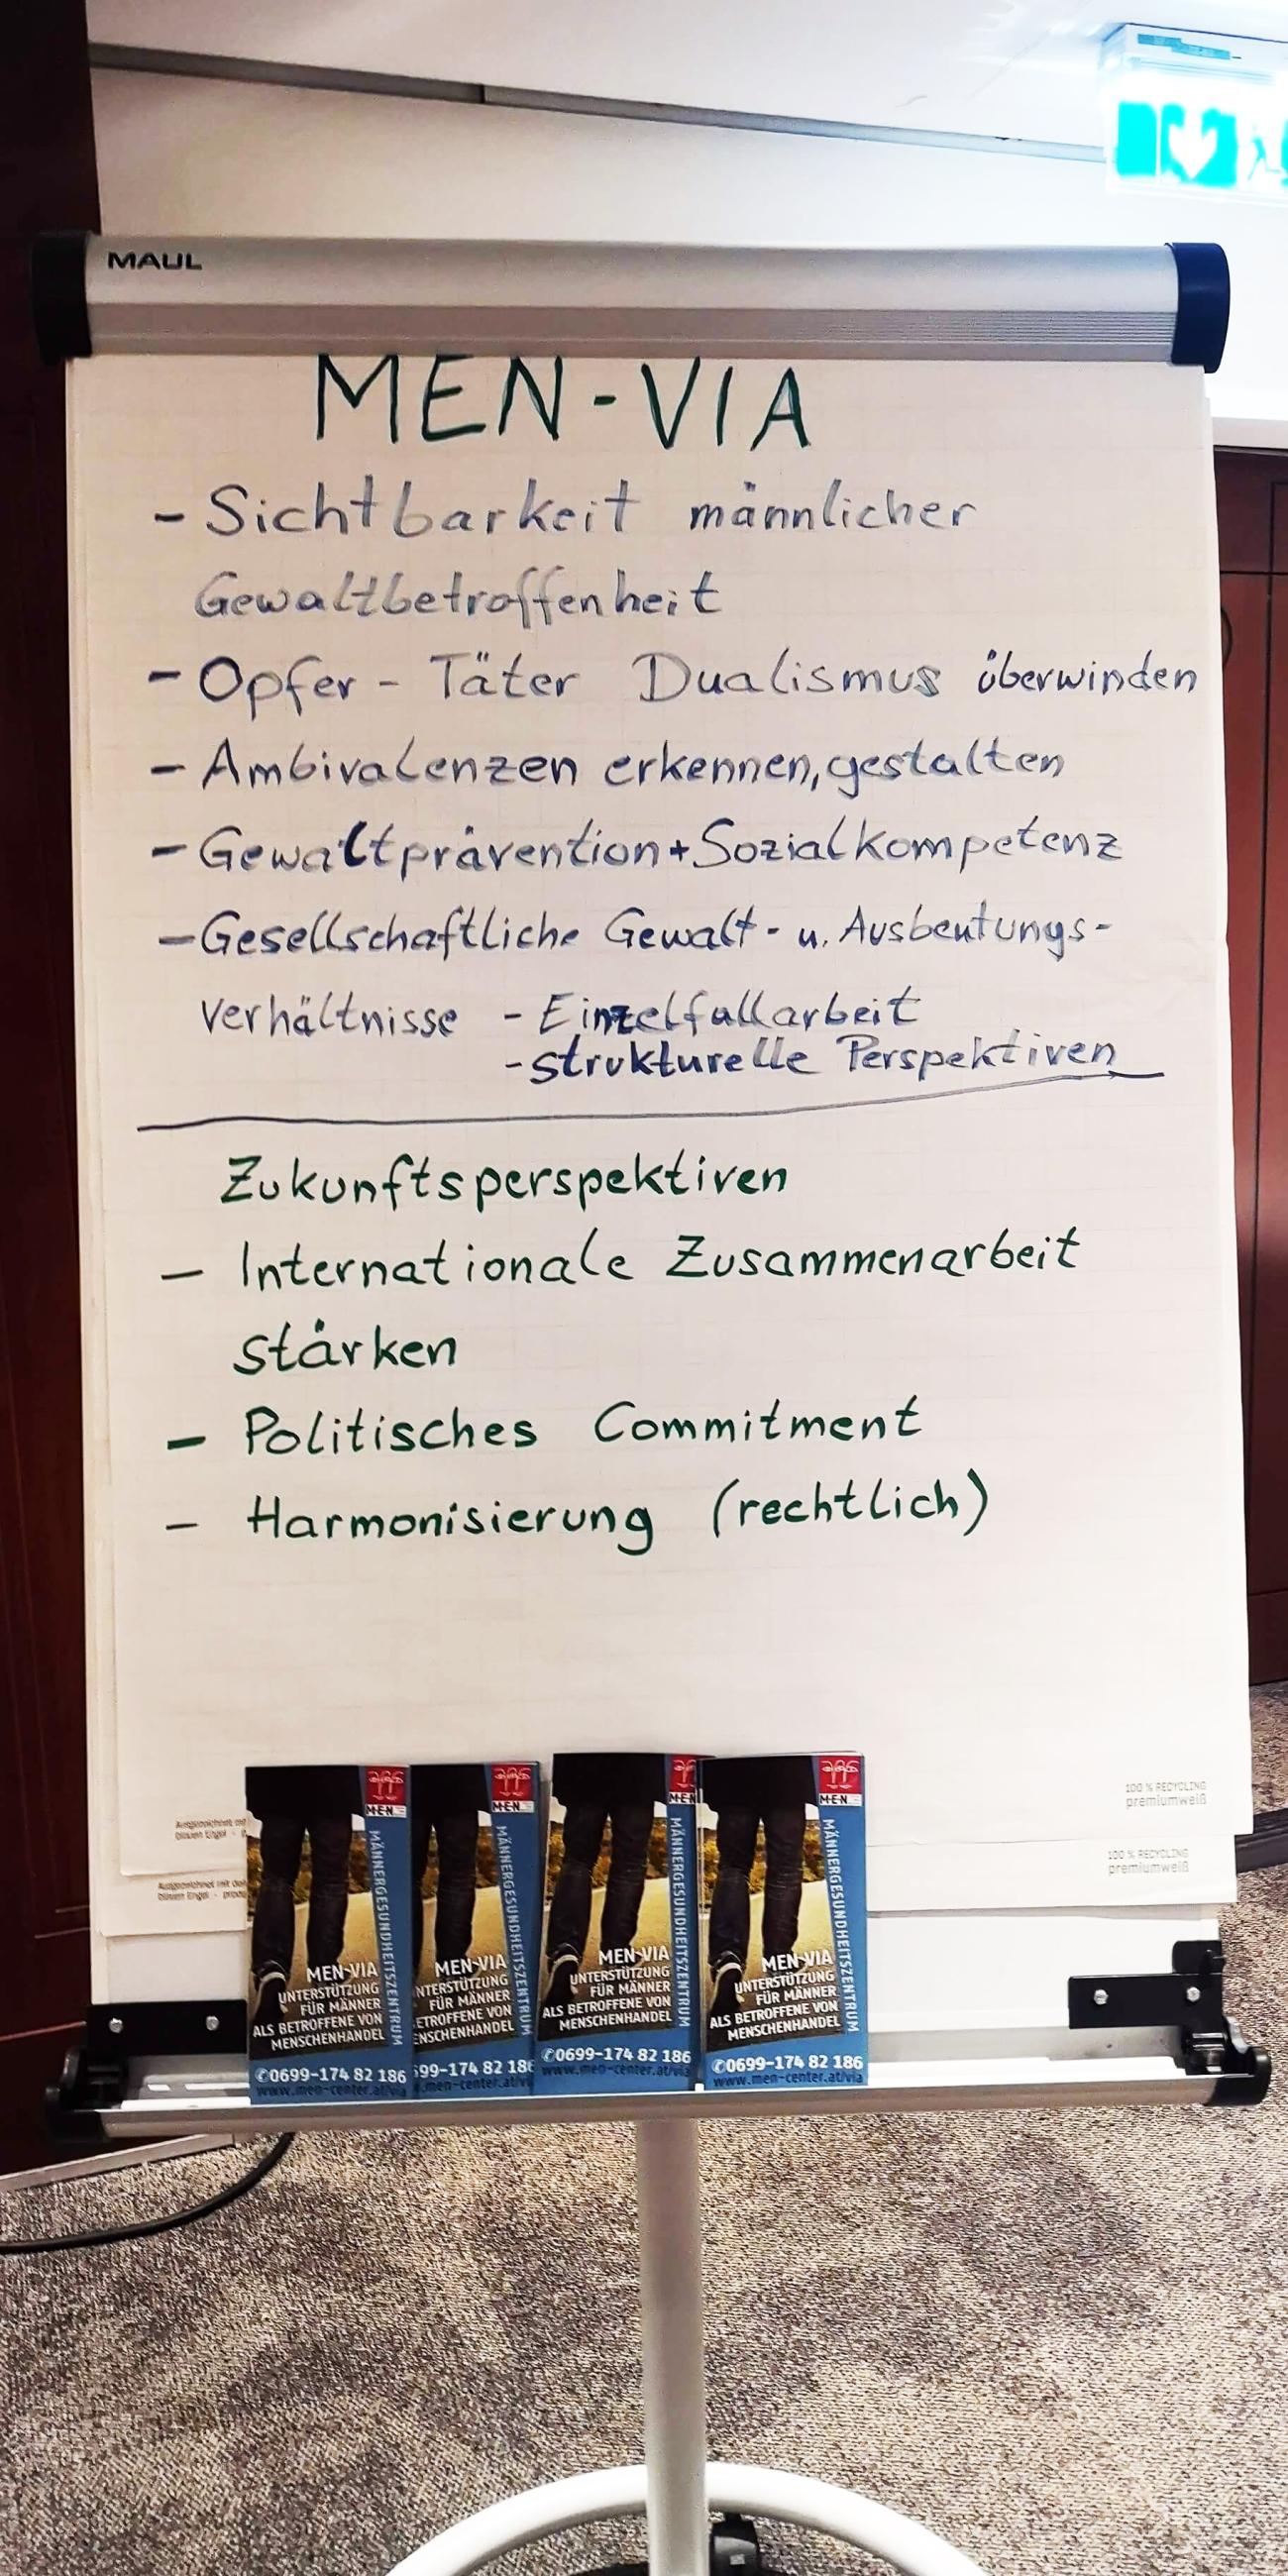 MAUL
MEN-VIA
- Sichtbarkeit männlicher
Gewaltbetroffenheit
- Opfer - Täter Dualismus überwinden
- Ambivalenzen erkennen, gestalten
- Gewaltprävention + Sozialkompetenz
- Gesellschaftliche Gewalt- u. Ausbeutungs-
verhältnisse - Einzelfallarbeit
- strukturelle Perspektiven
Zukunftsperspektiven
- Internationale Zusammenarbeit
stärken
- Politisches Commitment
- Harmonisierung (rechtlich)
100 % RECYCLING
premiumweiß
100 % RECYCLING
premiumweiß
Ausgezeichnet mit
blauen Engel
Ausgezeichnet mit de
blauen Engel - produ
M·E·N
MÄNNERGESUNDHEITSZENTRUM
MEN VIA
UNTERSTÜTZUNG
FÜR MÄNNER
ALS BETROFFENE VON
MENSCHENHANDEL
✆0699-174 82 186
www.men-center.at/via
M·E·N
MÄNNERGESUNDHEITSZENTRUM
MEN VIA
NTERSTÜTZUNG
FÜR MÄNNER
ETROFFENE VON
ENSCHENHANDEL
599-174 82 186
.men-center.at/vi
M·E·N
MÄNNERGESUNDHEITSZENTRUM
MEN VIA
UNTERSTÜTZUNG
FÜR MÄNNER
ALS BETROFFENE VON
MENSCHENHANDEL
✆0699-174 82 186
www.men-center.at/via
M·E·N
MÄNNERGESUNDHEITSZENTRUM
MEN VIA
UNTERSTÜTZUNG
FÜR MÄNNER
ALS BETROFFENE VON
MENSCHENHANDEL
✆0699-174 82 186
www.men-center.at/via